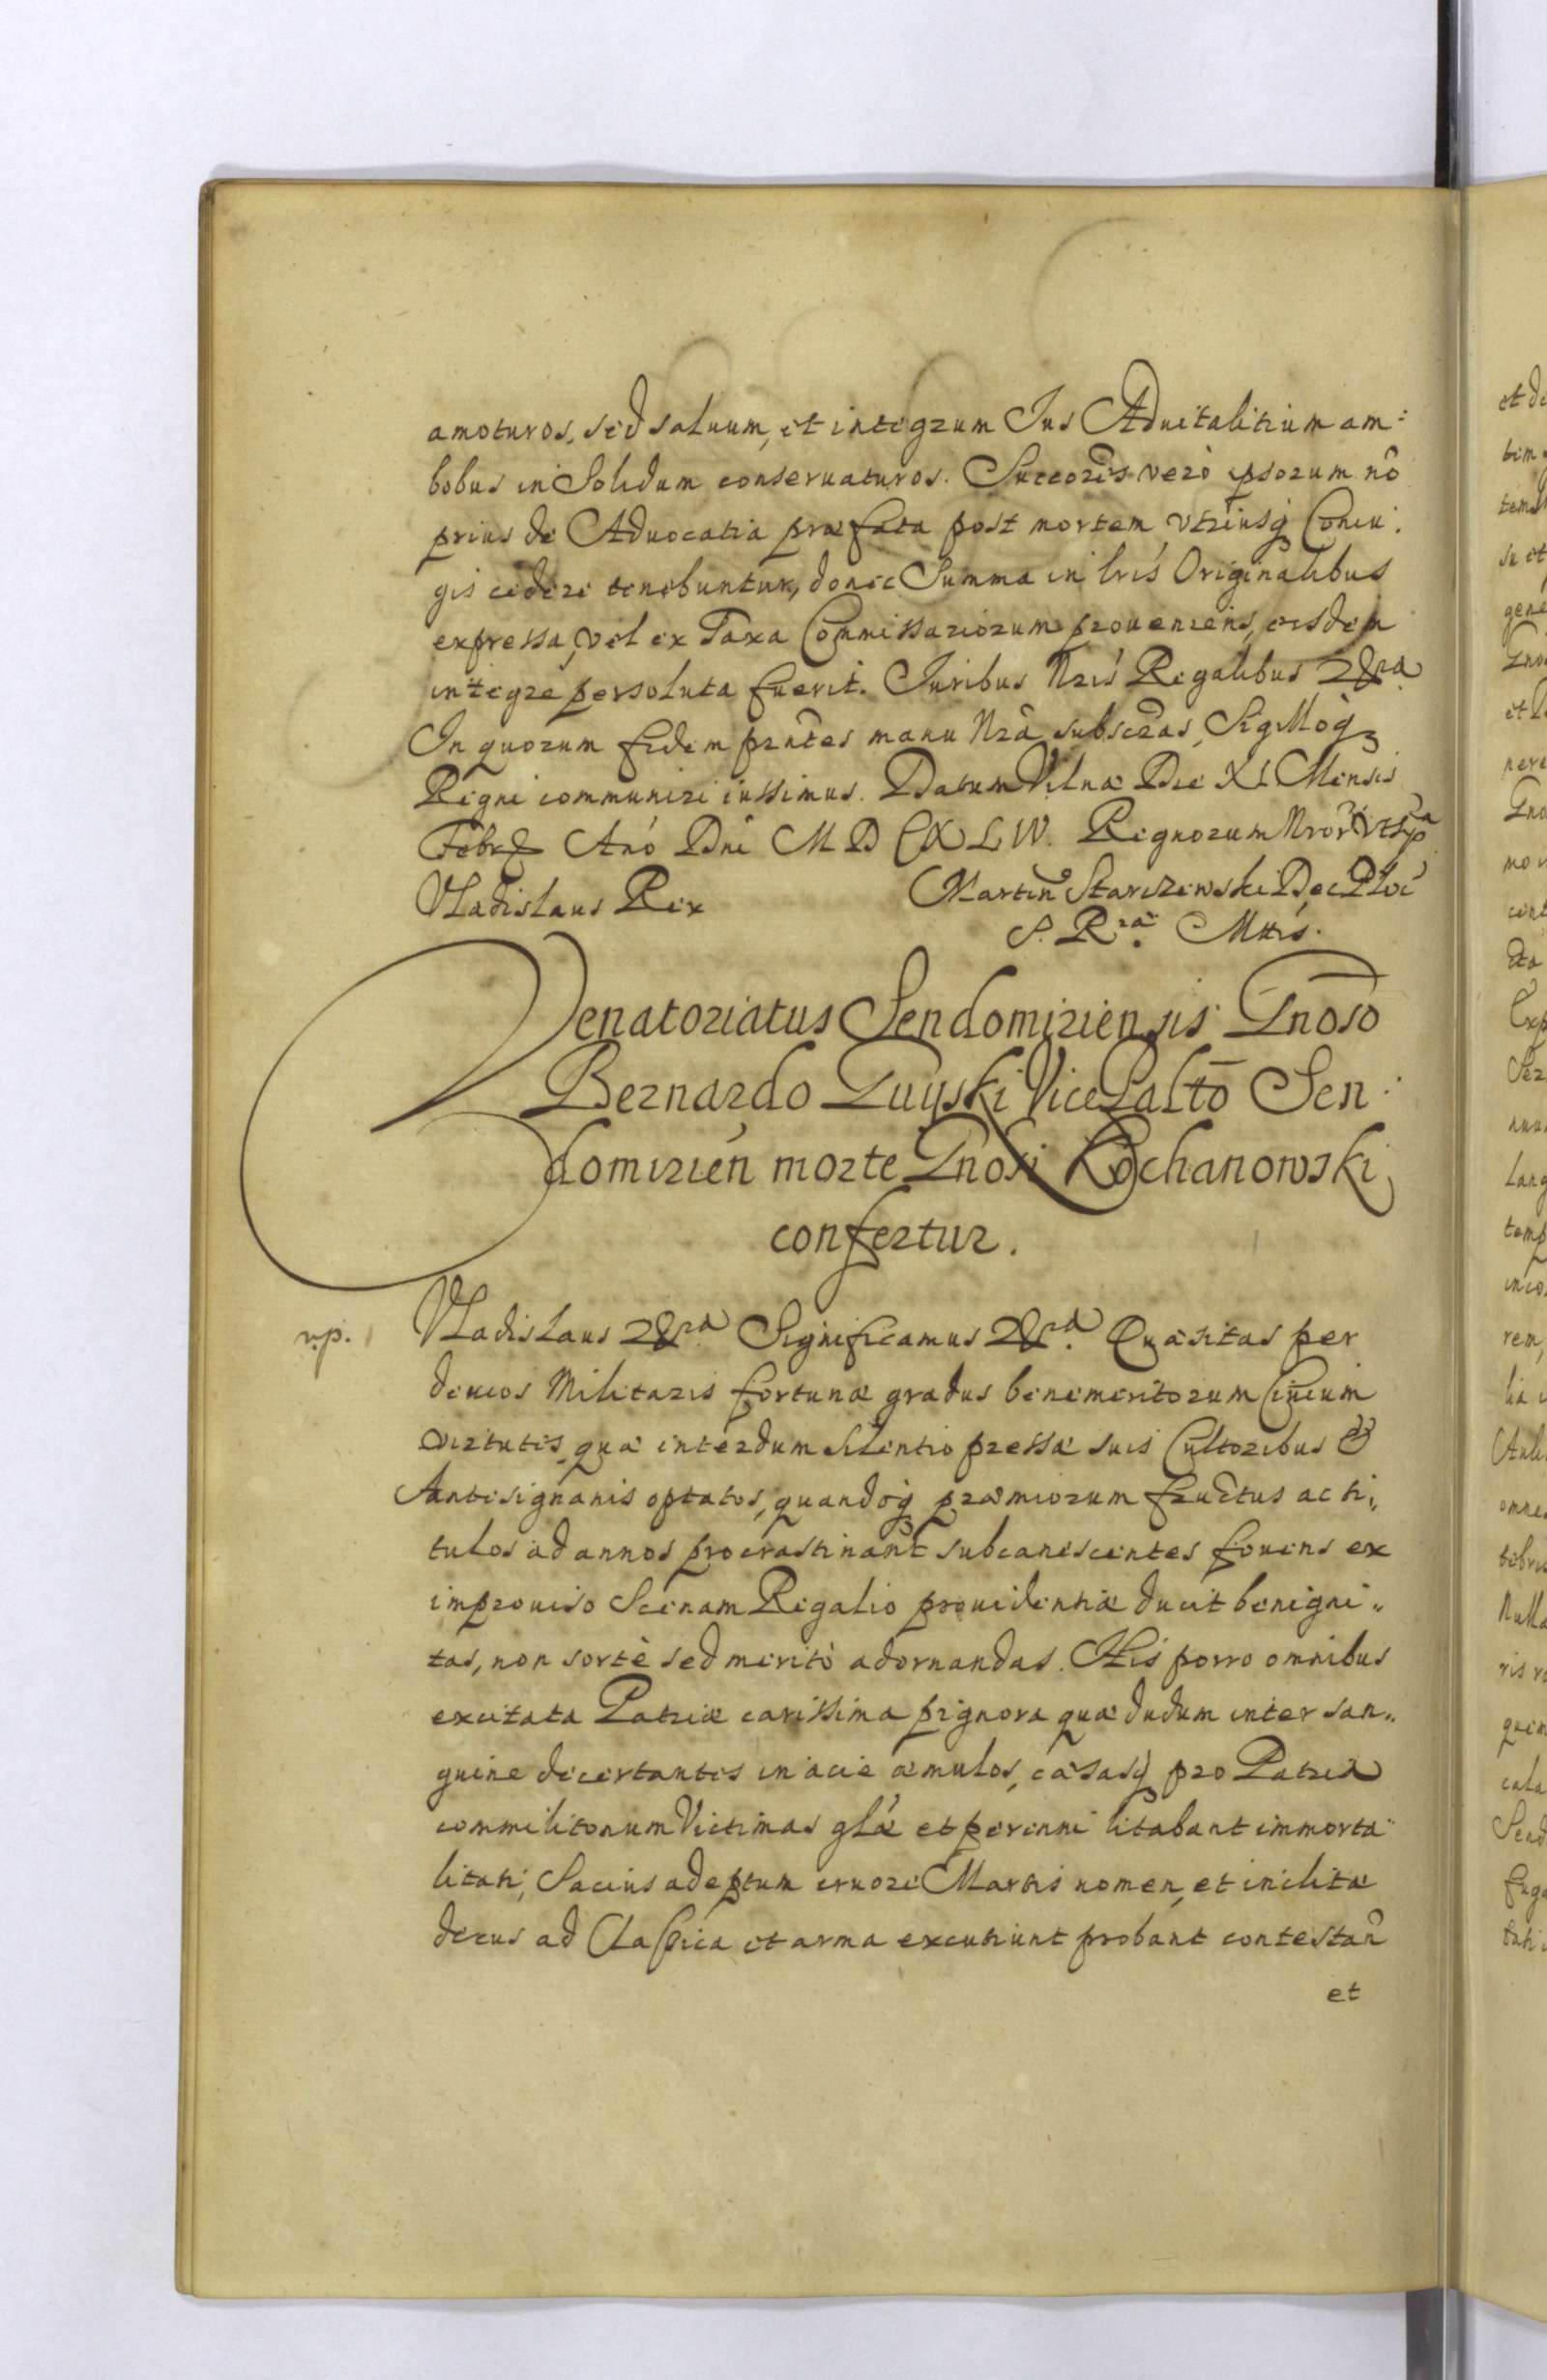 amoturos, sed saluum, et integrum Ius Aduitalitium am:
bobus in Solidum conseruaturos. Succores verò ipsorum nō
prius de Aduocatia præfata post mortem vtriusq Coniu:
gis cedere tenebuntur, donec Summa in lris Originalibus
expressa, vel ex Taxa Commissariorum proueniens, eisdem
integre persoluta fuerit. Iuribus Nris Regalibus &ra
In quorum fidem prntes manu Nrâ subscras, Sigilloq
Regni communiri iussimus. Datum Vilnæ Die XI Mensis
Febr Anó Dni M D C X L IV. Regnorum Nror vtspa
Vladislaus Rex Martin Stariszewski Dec Ploc
S. Rræ Mttis.
Venatoriatus Sendomiriensis Gnoso
Bernardo Guyski Vice Palto Sen:
domirień morte Gnosi Kochanowski
confertur.
rp. Vladislaus &ra Significamus &ra. Quæsitas per
deuios Militaris fortunæ gradus benemeritorum Ciuium
virtutes, quæ interdum silentio pressæ suis Cultoribus &
Antesignanis optatos, quandoq præmiorum fructus ac ti,,
tulos ad annos procrastinant subcanescentes fouens ex
improuiso Scenam Regalio prouidentiæ ducit benigni,,
tas, non sortè sed meritò adornandas. His porro omnibus
excitata Patriæ carissima pignora quæ dudum inter san,,
guine decertantes in acie æmulos, cæsasq pro Patria
commilitonum Victimas glæ et perenni litabant immorta
litati, Sacius adeptum cruore Martis nomen, et inclitæ
decus ad Classica et arma excutiunt probant contestan̄
et